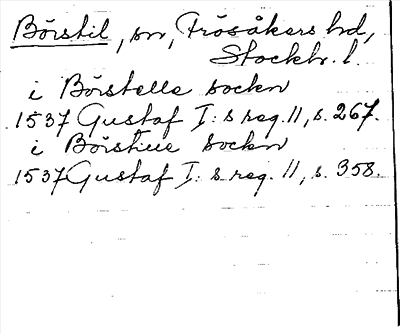 Börstil, sn, Frösåkers hd,
Stockh. l.
i Börstelle socken
1537 Gustaf I:s reg. 11, s. 267.
i Börstiue socken
1537 Gustaf I:s reg. 11, s. 358.